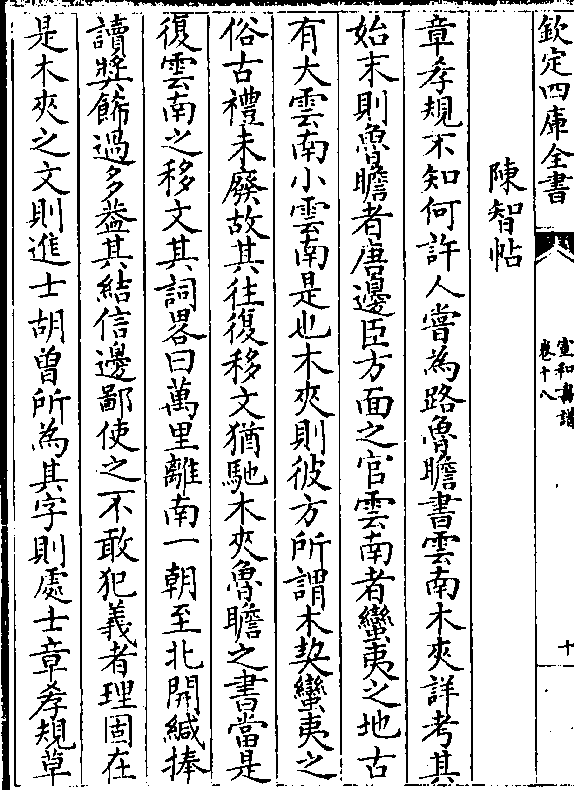 欽定四庫全書
宣和書譜
卷十八
十
陳智帖
章孝規不知何許人嘗為路魯瞻書雲南木夾詳考其
始末則魯瞻者唐邊臣方面之官雲南者蠻夷之地古
有大雲南小雲南是也木夾則彼方所謂木契蠻夷之
俗古禮未廢故其往復移文猶馳木夾魯瞻之書當是
復雲南之移文其詞畧曰萬里離南一朝至北開緘捧
讀獎飾過多葢其結信邊鄙使之不敢犯義者理固在
是木夾之文則進士胡曾所為其字則處士章孝規草